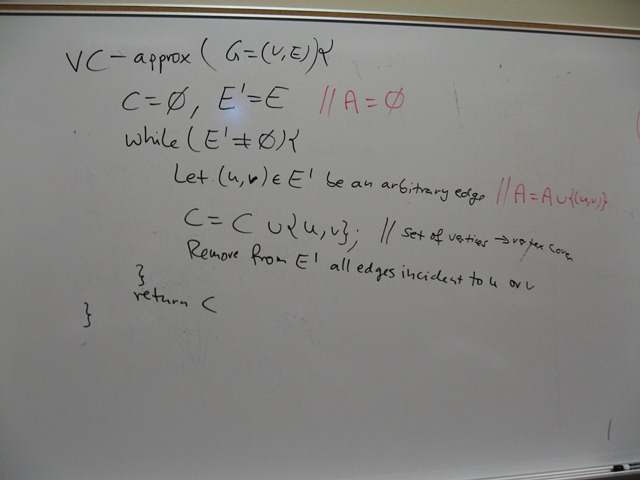 VC-approx( G=(V,E)){
C=∅, E'=E //A=∅
while(E'≠∅){
Let (u,v)∈E' be an arbitrary edge //A=A∪{(u,v)}
C=C∪{u,v}; // set of vertices → vertex cover
Remove from E' all edges incident to u or v
}
return C
}